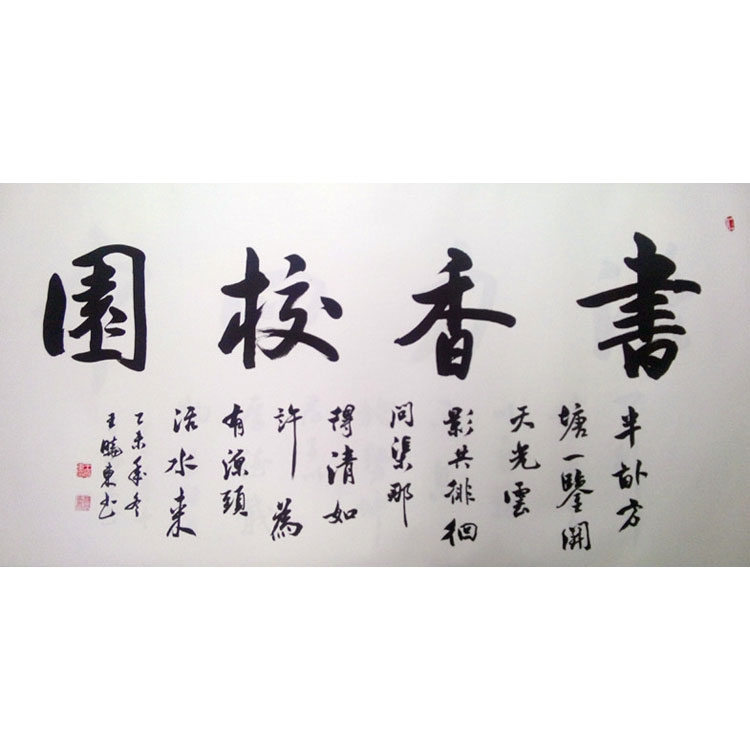 書香校園
半畝方
塘一鑒開
天光雲
影共徘徊
問渠那
得清如
許為
有源頭
活水来
乙未年冬
王東书